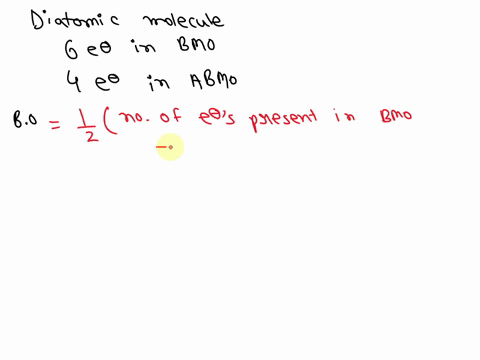 Diatomic molecule
6 e⊖ in BMO
4 e⊖ in ABMO
B.O = 1/2 ( no. of e⊖'s present in BMO
-